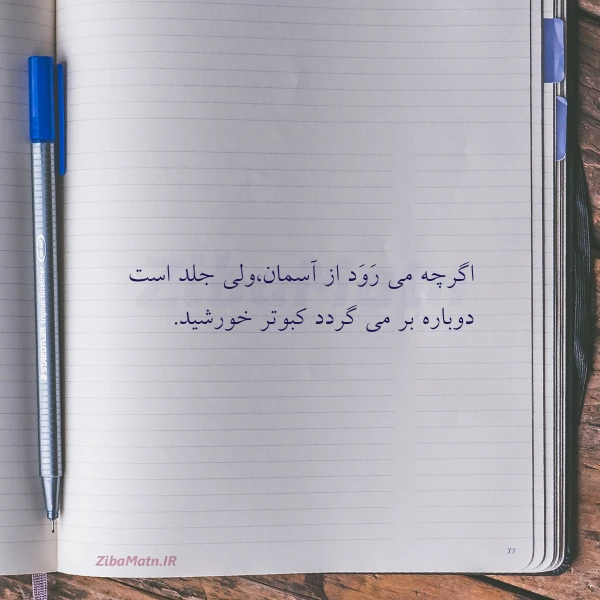 اگرچه می رَوَد از آسمان،ولی جلد است
دوباره بر می گردد کبوتر خورشید.
77
ZibaMatn.IR